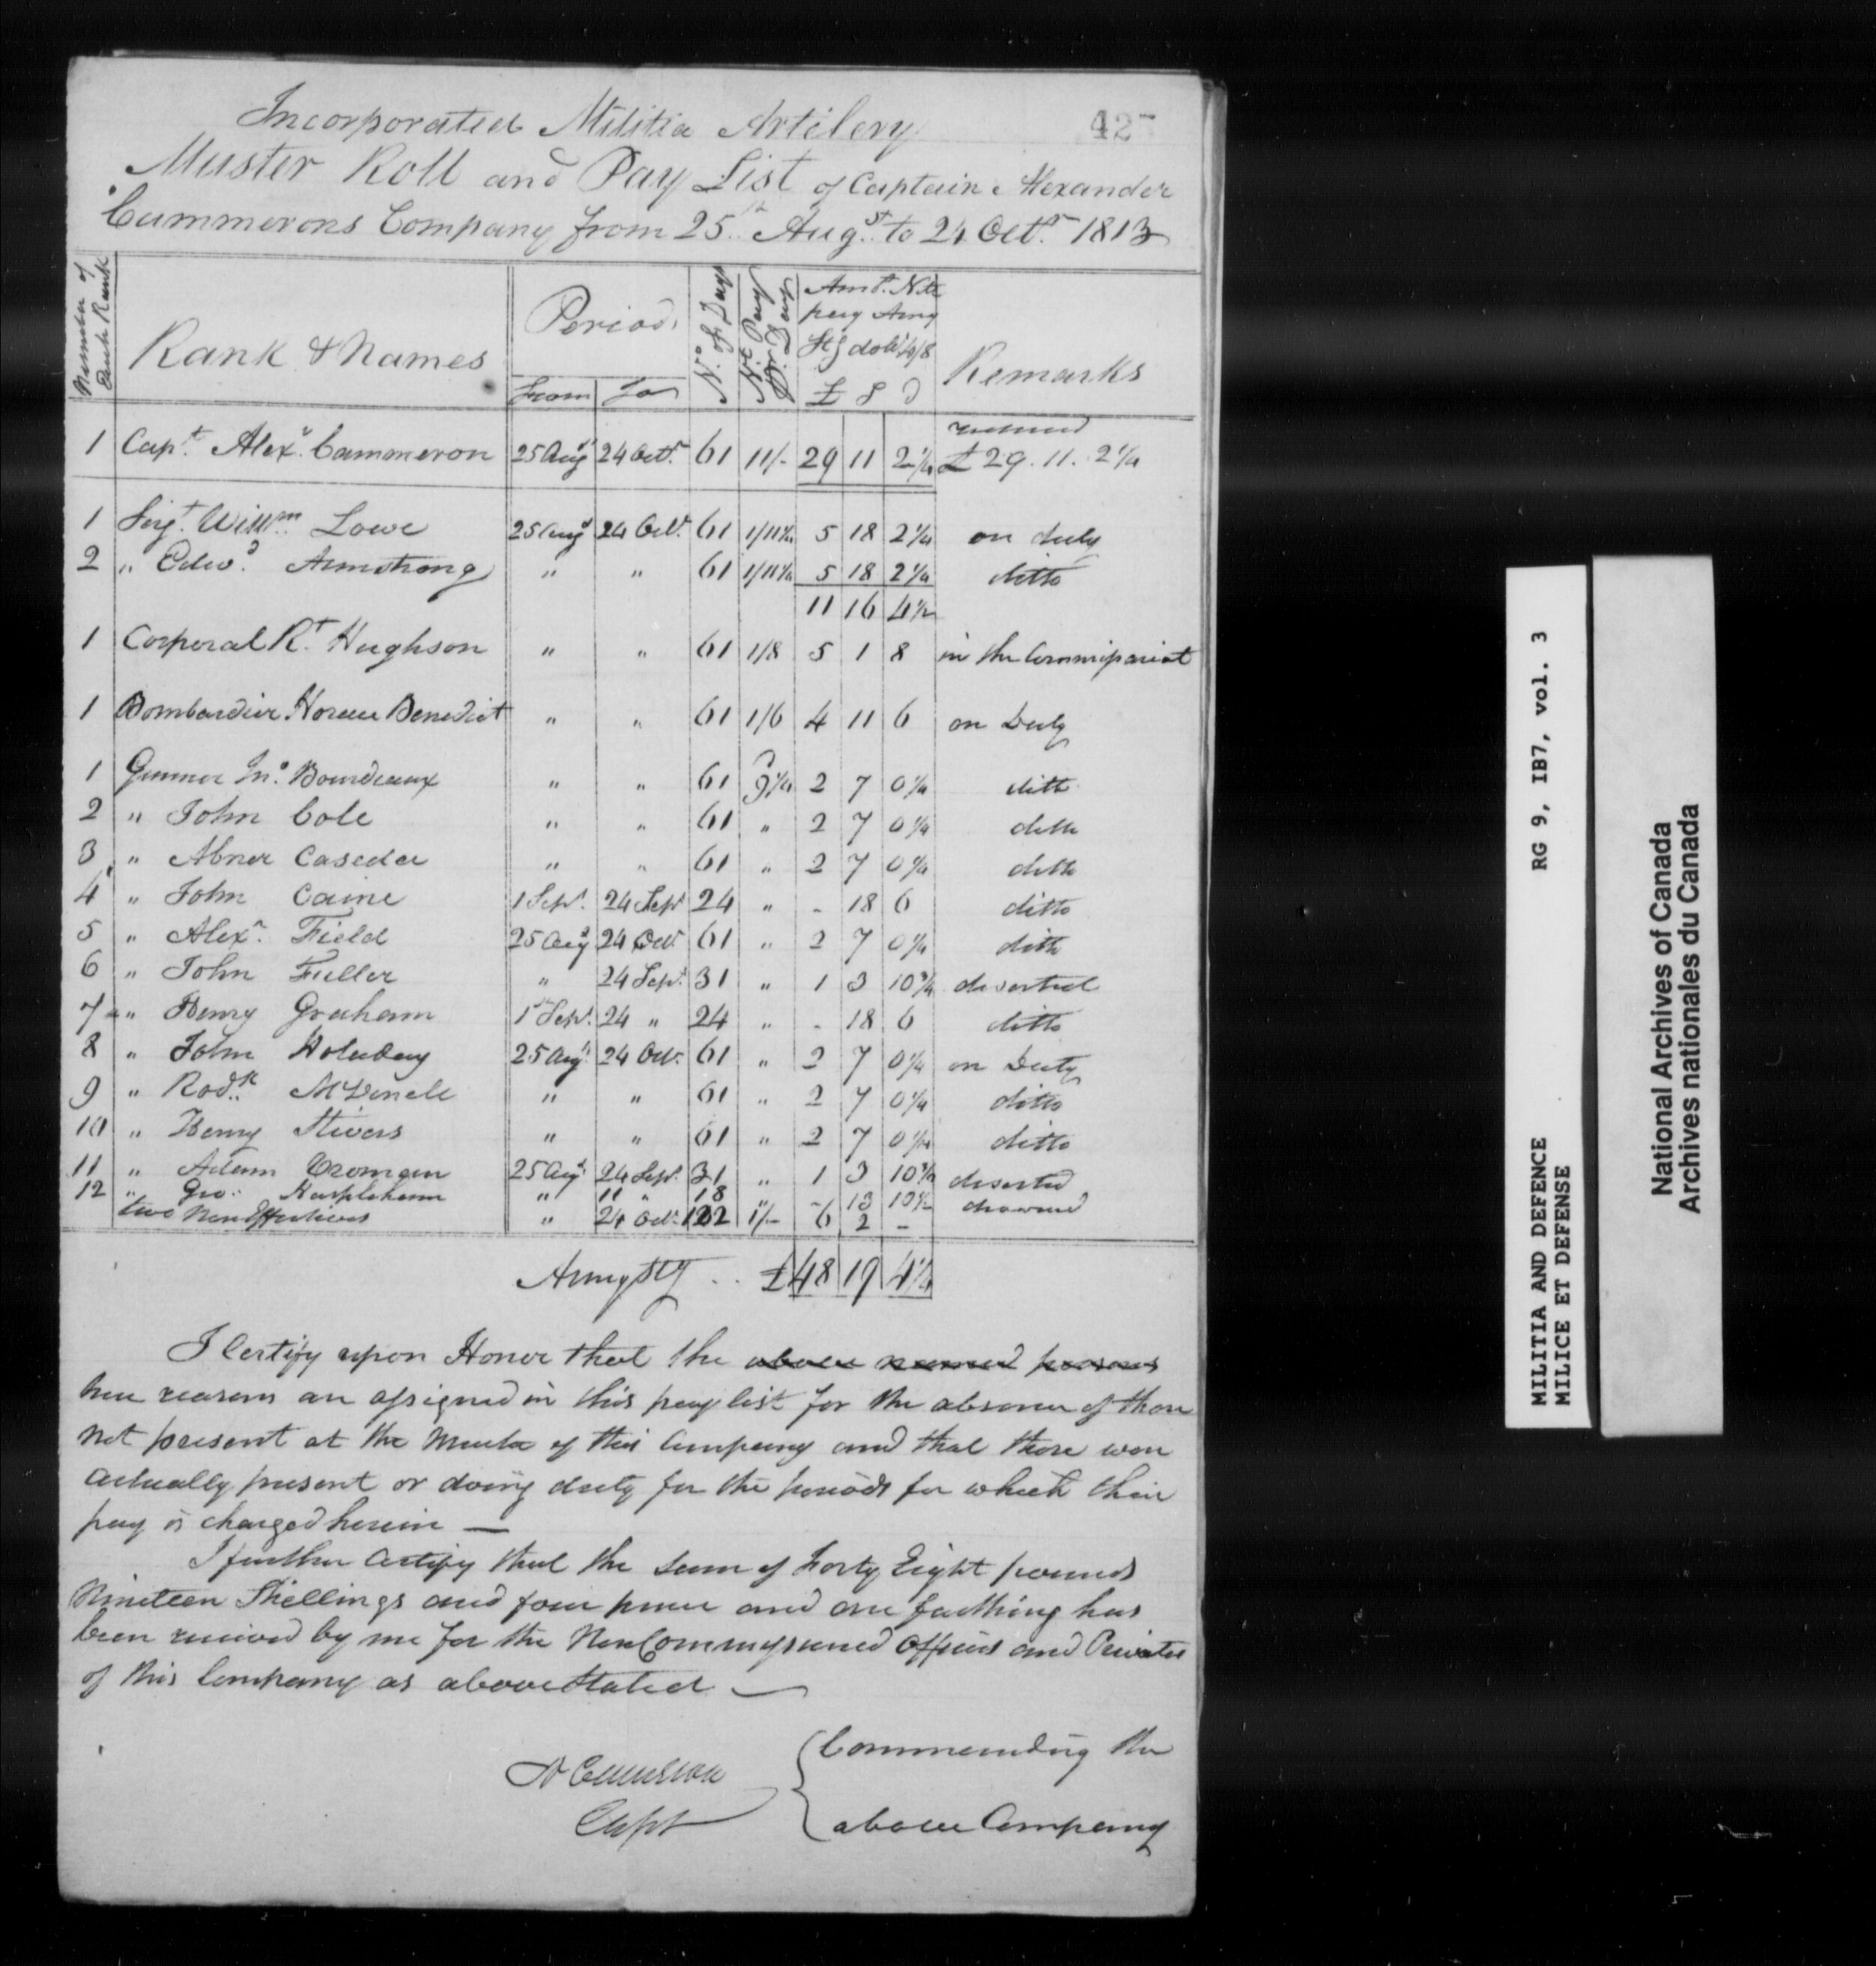 427
Incorporated Militia Artilery
Muster Roll and Pay List of Captain Alexander
Cammerons Company from 25th Augst to 24 Octr 1813
Number of Each Rank
Rank & Names
Period
From To
No. of Days
Nt Pay Pr Day
Amt. Nt
pay Army
Stg dolr 4/8
£ S D
Remarks
1 Capt Alexr Cammeron 25 Augt 24 Octr 61 11/- 29 11 2¼ received £29.11.2¼
1 Sergt Willm Lowe 25 Augt 24 Octr 61 1/11¼ 5 18 2¼ on duty
2 " Edwd Armstrong " " 61 1/11¼ 5 18 2¼ ditto
11 16 4½
1 Corporal Rt Hughson " " 61 1/8 5 1 8 in the Commissariat
1 Bombardier Horace Benedict " " 61 1/6 4 11 6 on Duty
1 Gunner Jno Bourdeaux " " 61 9¼ 2 7 0¼ ditto
2 " John Cole " " 61 " 2 7 0¼ ditto
3 " Abner " " 61 " 2 7 0¼ ditto
4 " John Caine 1 Sept. 24 Sept 24 " - 18 6 ditto
5 " Alexr Field 25 Augt 24 Octr 61 " 2 7 0¼ ditto
6 " John Fuller " 24 Sept. 31 " 1 3 10¾ deserted
7 " Henry Graham 1st Sept. 24 " 24 " - 18 6 ditto
8 " John Holeday 25 Augt 24 Octr 61 " 2 7 0¼ on Duty
9 " Rodk McDonell " " 61 " 2 7 0¼ ditto
10 " Henry Stivers " " 61 " 2 7 0¼ ditto
11 " Adam 25 Augt 24 Sept. 31 " 1 3 10¾ deserted
12 " Geo. " 11 " 18 " - 13 10½ drowned
two Non Effectives " 24 Octr 122 1/- 6 2 -
Army Stg .. £48 19 4¼
I Certify upon Honor that the above named persons
true reasons are assigned in this pay list for the absence of those
not present at the Muster of this Company and that those were
actually present or doing duty for the periods for which their
pay is charged herein —
I further Certify that the sum of Forty Eight pounds
Nineteen Shillings and four pence and one farthing has
been received by me for the Non Commissioned Officers and Privates
of this Company as above Stated —
A Cameron
Capt
Commanding the
above Company
MILITIA AND DEFENCE RG 9, IB7, vol. 3
MILICE ET DEFENSE
National Archives of Canada
Archives nationales du Canada